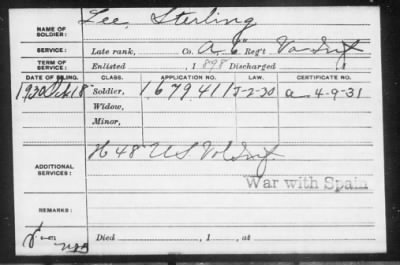 Lee, Sterling
NAME OF SOLDIER:
SERVICE: Late rank, Co. A, 6" Reg't Va Inf
TERM OF SERVICE: Enlisted , 1898 Discharged , 1
DATE OF FILING. CLASS. APPLICATION NO. LAW. CERTIFICATE NO.
1930 18 Soldier, 1679411 5-2-30 a 4-9-31
Widow,
Minor,
H 48 US Vol Inf
ADDITIONAL SERVICES:
War with Spain
REMARKS:
Died , 1 , at